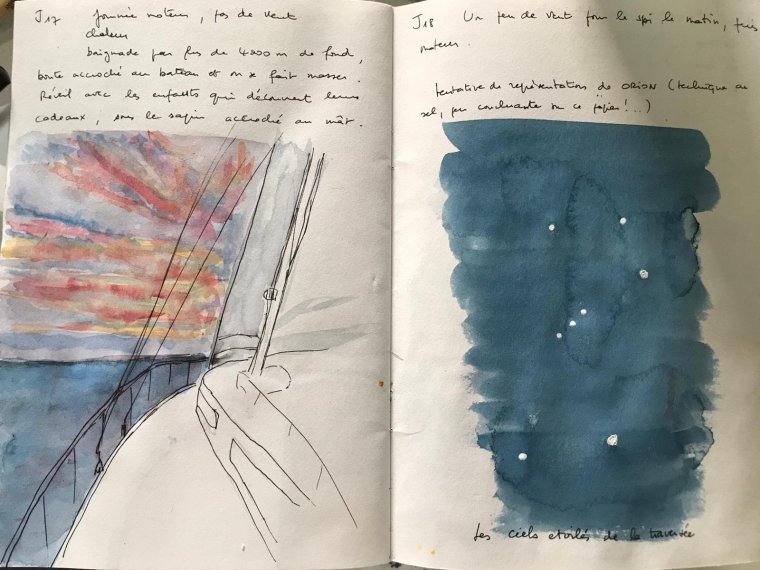 J17 journée moteur, pas de vent
chaleur
baignade par plus de 4000 m de fond,
boute accroché au bateau et on se fait masser.
Réveil avec les enfants qui découvrent leurs
cadeaux, sous le sapin accroché au mât.
J18 Un peu de vent pour le spi le matin, puis
moteur.
tentative de représentation de ORION (technique au
sel, peu concluante sur ce papier!..)
Les ciels etoilés de la traversée